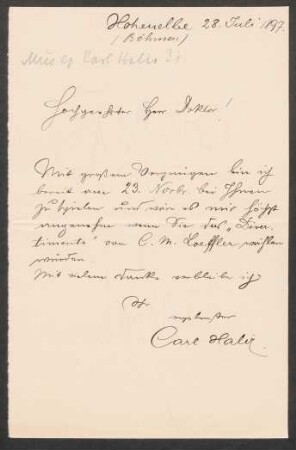 Hohenelbe 28. Juli 1897.
(Böhmen)
Carl Halir
Hochgeehrter Herr Doktor!
Mit großem Vergnügen bin ich
bereit am 23. Novbr. bei Ihnen
zu spielen und wär es mir höchst
angenehm wenn Sie das „Diver-
timento" von C. M. Loeffler wählen
würden.
Mit vielem Danke verbleibe ich
Ihr
ergebenster
Carl Halir.